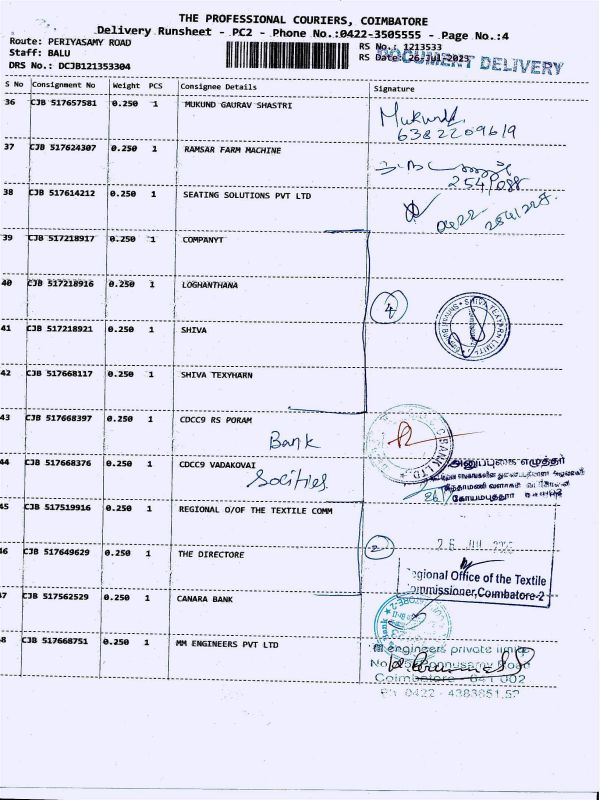 THE PROFESSIONAL COURIERS, COIMBATORE
Delivery Runsheet - PC2 - Phone No.:0422-3505555 - Page No.:4
Route: PERIYASAMY ROAD
RS No.: 1213533
Staff: BALU
RS Date: 26-Jul-2023
DOCUMENT DELIVERY
DRS No.: DCJB121353304
S No Consignment No Weight PCS Consignee Details Signature
36 CJB 517657581 0.250 1 MUKUND GAURAV SHASTRI
Mukund
6382209619
37 CJB 517624307 0.250 1 RAMSAR FARM MACHINE
254/088
38 CJB 517614212 0.250 1 SEATING SOLUTIONS PVT LTD
0422
39 CJB 517218917 0.250 1 COMPANYT
40 CJB 517218916 0.250 1 LOGHANTHANA
4
41 CJB 517218921 0.250 1 SHIVA
42 CJB 517668117 0.250 1 SHIVA TEXYHARN
43 CJB 517668397 0.250 1 CDCC9 RS PORAM
Bank
BANK LTD
44 CJB 517668376 0.250 1 CDCC9 VADAKOVAI
Socities
அனுப்புகை எழுத்தர்
26/
கோயமுத்தூர்
45 CJB 517519916 0.250 1 REGIONAL O/OF THE TEXTILE COMM
2
46 CJB 517649629 0.250 1 THE DIRECTORE
Regional Office of the Textile
Commissioner,Coimbatore-2
47 CJB 517562529 0.250 1 CANARA BANK
48 CJB 517668751 0.250 1 MM ENGINEERS PVT LTD
engineers private limite
Ponnusamy Road
Coimbatore - 641 002
Ph 0422 - 4383651,52